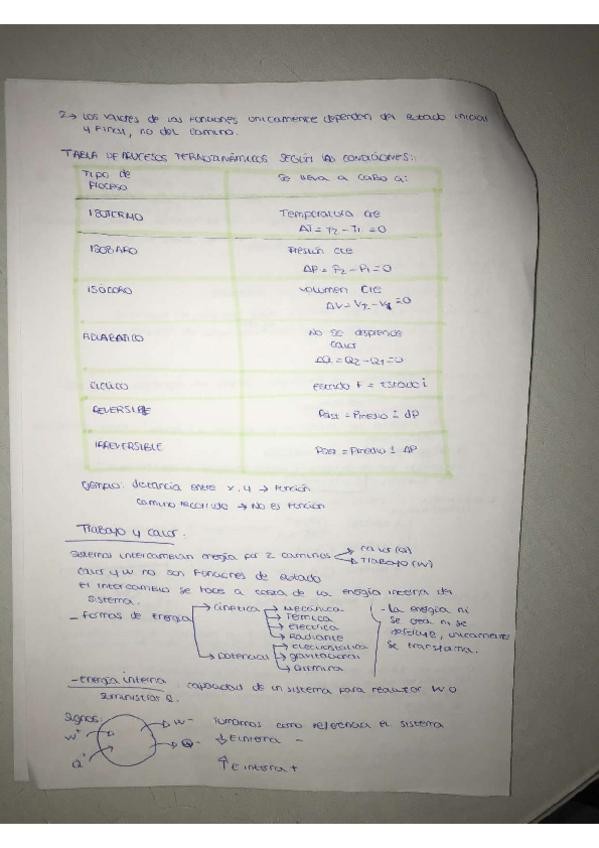 2 → Los valores de las funciones unicamente dependen del estado inicial
y final, no del camino.
TABLA DE PROCESOS TERMODINÁMICOS SEGÚN LAS CONDICIONES:
Tipo de Proceso
Se lleva a cabo a:
ISOTERMO
Temperatura cte
ΔT = T2 - T1 = 0
ISOBARO
Presión cte
ΔP = P2 - P1 = 0
ISÓCORO
Volumen cte
ΔV = V2 - V1 = 0
ADIABATICO
No se desprende
calor
ΔQ = Q2 - Q1 = 0
CICLICO
estado F = Estado i
REVERSIBLE
Psist = Pmedio ± dP
IRREVERSIBLE
Psist = Pmedio ± ΔP
Ejemplo: distancia entre x, y → Función
camino recorrido → No es función
Trabajo y calor.
Sistemas intercambian energía por 2 caminos → calor (Q)
→ TRABAJO (W)
Calor y W no son Funciones de estado
El intercambio se hace a costa de la energía interna del
sistema.
- Formas de energía
Cinética
Mecánica
Térmica
eléctrica
Radiante
potencial
electrostática
gravitacional
Química
- La energía ni
se crea ni se
destruye, unicamente
se transforma.
- energía interna: capacidad de un sistema para realizar W o
suministrar Q.
Signos:
W+
Q+
W-
Q-
Tomamos como referencia el sistema
↓ E interna -
↑ E interna +